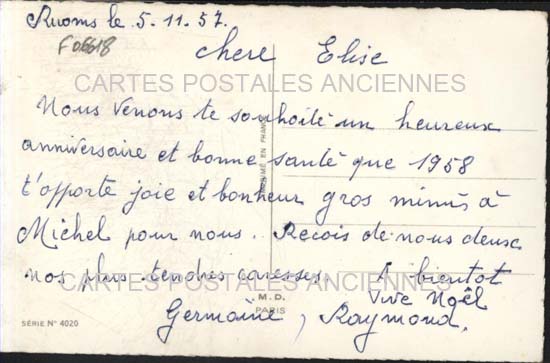 Ruoms le 5.11.57.
F06618
chere Elise
CARTES POSTALES ANCIENNES
Nous venons te souhaité un heureux
anniversaire et bonne santé que 1958
t'apporte joie et bonheur gros minis à
Michel pour nous. Recois de nous deux
nos plus tendres caresses. A bientot
CARTES POSTALES ANCIENNES
Vive Noël
Germaine, Raymond.
IMPRIMÉ EN FRANCE
M.D.
PARIS
SÉRIE N° 4020